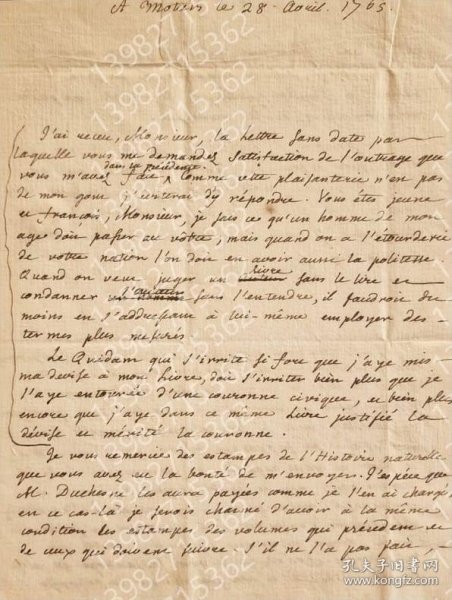 A Motiers le 28. Avril. 1765.
J'ai receu, Monsieur, la lettre sans date par
laquelle vous me demandez satisfaction de l'outrage que
dans la précédente.
vous m'avez fait, comme cette plaisanterie n'est pas
de mon gout j'éviterai d'y répondre. Vous étes jeune
et françois, Monsieur, je sais ce qu'un homme de mon
age doit passer au vôtre, mais quand on a l'étourderie
de votre nation l'on doit en avoir aussi la politesse.
livre
Quand on veut juger un sans le lire et
l'auteur
condanner un homme sans l'entendre, il faudroit du
moins en s'addressant à lui-même employer des
termes plus mesurés.
Le Quidam qui s'irrite si fort que j'aye mis
ma devise à mon Livre, doit s'irriter bien plus que je
l'aye entourée d'une couronne civique, et bien plus
encore que j'aye dans ce même Livre justifié la
dévise et mérité la couronne.
Je vous remercie des estampes de l'Histoire naturelle
que vous avez eu la bonté de m'envoyer. J'espére que
M. Duchesne les aura payées comme je l'en ai chargé,
en ce cas-là je serois charmé d'avoir à la même
condition les estampes des volumes qui précédent et
de ceux qui doivent suivre. S'il ne l'a pas fait,
13982715362
孔夫子旧书网
kongfz.com